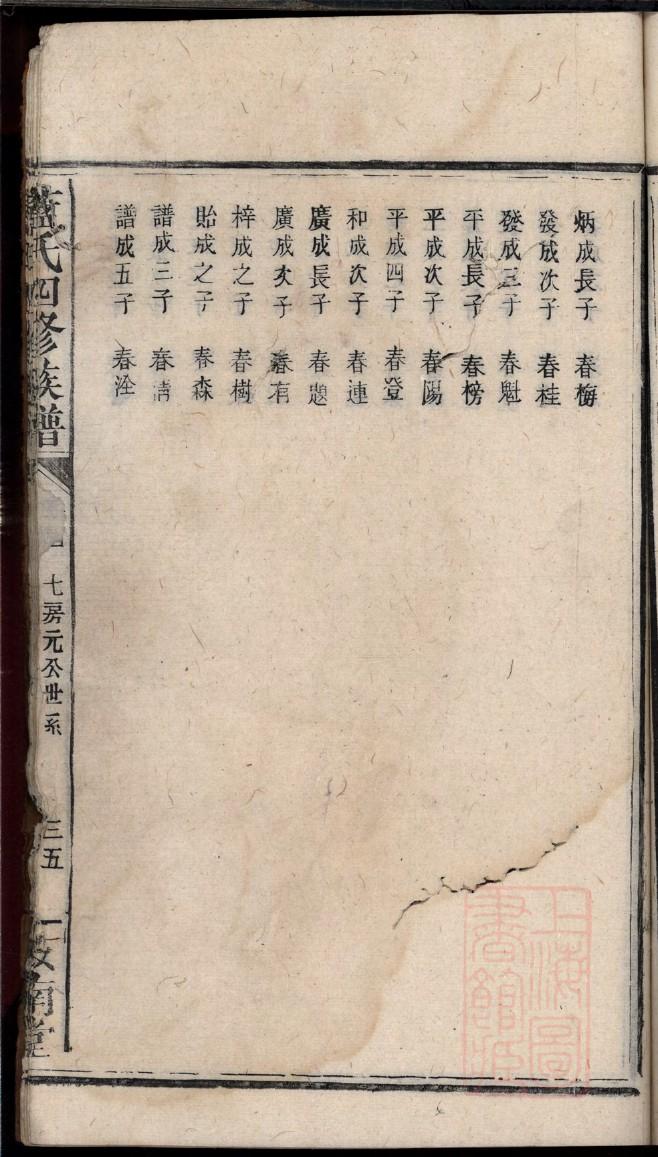 炳成長子 春梅
發成次子 春桂
發成三子 春魁
平成長子 春榜
平成次子 春陽
平成四子 春登
和成次子 春連
廣成長子 春題
廣成次子 春有
梓成之子 春樹
貽成之子 春森
譜成三子 春清
譜成五子 春淦
氏四修族譜
七房元公世系
三五
南堂
上海圖書館藏